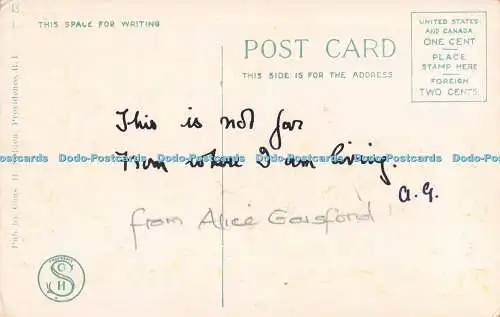 THIS SPACE FOR WRITING
POST CARD
THIS SIDE IS FOR THE ADDRESS
UNITED STATES
AND CANADA
ONE CENT
PLACE
STAMP HERE
FOREIGN
TWO CENTS
This is not far
from where I am living.
A.G.
from Alice Gaisford
Dodo-Postcards Dodo-Postcards Dodo-Postcards Dodo-Postcards Dodo-Postcards Dodo-Postcards
Pub. by Chas. H. Providence, R.I.